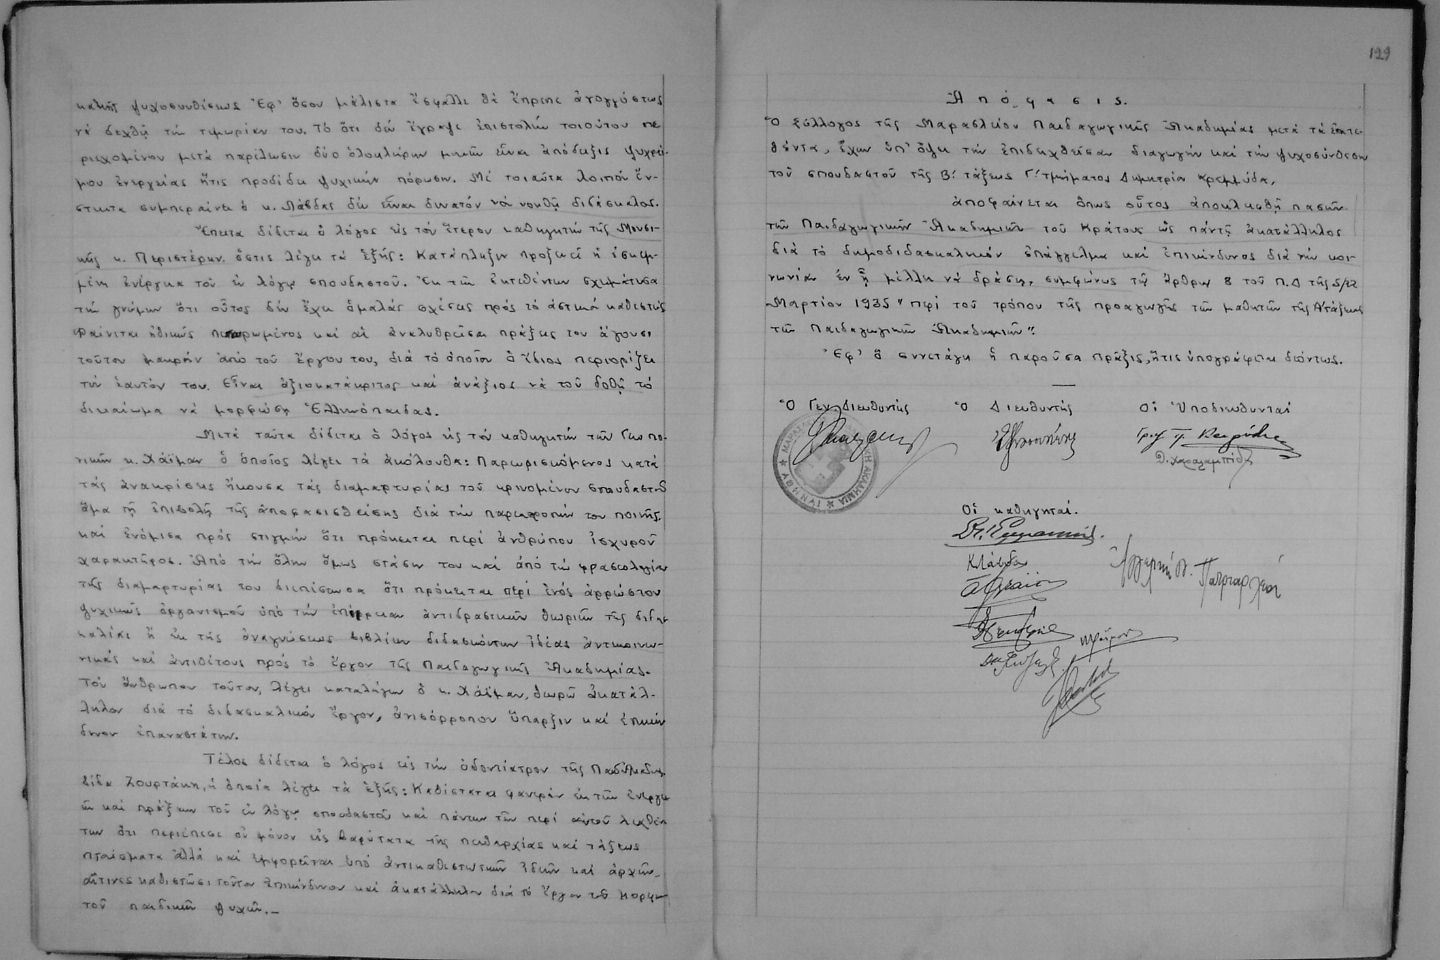 κακῆς ψυχοσυνθέσεως. Ἐφ' ὅσον μάλιστα ἔσφαλλε θὰ ἔπρεπε ἀγογγύστως
νὰ δεχθῇ τὴν τιμωρίαν του. Τὸ ὅτι δὲν ἔγραψε ἐπιστολὴν τοιούτου πε
ριεχομένου μετὰ παρέλευσιν δύο ὁλοκλήρων μηνῶν εἶναι ἀπόδειξις ψυχραί-
μου ἐνεργείας ἥτις προδίδει ψυχικὴν πώρωσιν. Μὲ τοιαῦτα λοιπὸν ἔν-
στικτα συμπεραίνει ὁ κ. Λάβδας δὲν εἶναι δυνατὸν νὰ νοηθῇ διδάσκαλος.
Ἔπειτα δίδεται ὁ λόγος εἰς τὸν ἕτερον καθηγητὴν τῆς Μουσι-
κῆς κ. Περιστέρην ὅστις λέγει τὰ ἑξῆς: Κατάπληξιν προξενεῖ ἡ ἐσκεμ-
μένη ἐνέργεια τοῦ ἐν λόγῳ σπουδαστοῦ. Ἐκ τῶν ἐκτεθέντων σχημάτισα
τὴν γνώμην ὅτι οὗτος δὲν ἔχει ὁμαλὰς σχέσεις πρὸς τὸ ἀστικὸν καθεστώς
Φαίνεται ἠθικῶς πεπωρωμένος καὶ αἱ ἀνακαλυφθεῖσαι πράξεις του ἄγουσι
τοῦτον μακρὰν ἀπὸ τοῦ ἔργου του, διὰ τὸ ὁποῖον ὁ ἴδιος περιορίζει
τὴν ἑαυτόν του. Εἶναι ἀξιοκατάκριτος καὶ ἀνάξιος νὰ τοῦ δοθῇ τὸ
δικαίωμα νὰ μορφώσῃ Ἑλληνόπαιδας.
Μετὰ ταῦτα δίδεται ὁ λόγος εἰς τὸν καθηγητὴν τῶν Γεωπο-
νικῶν κ. Χάϊμαν ὁ ὁποῖος λέγει τὰ ἀκόλουθα: Παρευρισκόμενος κατὰ
τὰς ἀνακρίσεις ἤκουσα τὰς διαμαρτυρίας τοῦ κρινομένου σπουδαστοῦ
ἅμα τῇ ἐπιβολῇ τῆς ἀποφασισθείσης διὰ τὴν παρεκτροπήν του ποινῆς
καὶ ἐνόμισα πρὸς στιγμὴν ὅτι πρόκειται περὶ ἀνθρώπου ἰσχυροῦ
χαρακτῆρος. Ἀπὸ τὴν ὅλην ὅμως στάσιν του καὶ ἀπὸ τὴν φρασεολογίαν
τῆς διαμαρτυρίας του διεπίστωσα ὅτι πρόκειται περὶ ἑνὸς ἀρρώστου
ψυχικῶς ὀργανισμοῦ ὑπὸ τὴν ἐπήρρειαν ἀντιδραστικῶν θεωριῶν τῆς διδασ
καλίας ἢ ἐκ τῆς ἀναγνώσεως βιβλίων διδασκόντων ἰδέας ἀντικοινω-
νικὰς καὶ ἀντιθέτους πρὸς τὸ ἔργον τῆς Παιδαγωγικῆς Ἀκαδημίας.
Τὸν ἄνθρωπον τοῦτον, λέγει καταλήγων ὁ κ. Χάϊμαν, θεωρῶ ἀκατάλ-
ληλον διὰ τὸ διδασκαλικὸν ἔργον, ἀνισόρροπον ὕπαρξιν καὶ ἐπικίν
δυνον ἐπαναστάτην.
Τέλος δίδεται ὁ λόγος εἰς τὴν ὀδοντίατρον τῆς Παιδ. Ἀκαδημίας
Δίδα Ζουρτάκη, ἡ ὁποία λέγει τὰ ἑξῆς: Καθίσταται φανερὸν ἐκ τῶν ἐνεργει
ῶν καὶ πράξεων τοῦ ἐν λόγῳ σπουδαστοῦ καὶ πάντων τῶν περὶ αὐτοῦ λεχθέν
των ὅτι περιέπεσε οὐ μόνον εἰς βαρύτατα τῆς πειθαρχίας καὶ τάξεως
πταίσματα ἀλλὰ καὶ ἐμφορεῖται ὑπὸ ἀντικαθεστωτικῶν ἰδεῶν καὶ ἀρχῶν,
αἵτινες καθιστῶσι τοῦτον ἐπικίνδυνον καὶ ἀκατάλληλον διὰ τὸ ἔργον τοῦ μορφω
τοῦ παιδικῶν ψυχῶν.-
129
Ἀπόφασις.
Ὁ σύλλογος τῆς Μαρασλείου Παιδαγωγικῆς Ἀκαδημίας μετὰ τὰ ἐκτε
θέντα, ἔχων ὑπ' ὄψει τὴν ἐπιδειχθεῖσαν διαγωγὴν καὶ τὴν ψυχοσύνθεσιν
τοῦ σπουδαστοῦ τῆς Β! τάξεως Γ! τμήματος Δημητρίου Κρεμμύδα,
ἀποφαίνεται ὅπως οὗτος ἀποκλεισθῇ πασῶν
τῶν Παιδαγωγικῶν Ἀκαδημιῶν τοῦ Κράτους ὡς πάντῃ ἀκατάλληλος
διὰ τὸ δημοδιδασκαλικὸν ἐπάγγελμα καὶ ἐπικίνδυνος διὰ τὴν κοι-
νωνίαν ἐν ᾗ μέλλει νὰ δράσῃ, συμφώνως τῷ ἄρθρῳ 8 τοῦ Π.Δ τῆς 5/12
Μαρτίου 1935 "περὶ τοῦ τρόπου τῆς προαγωγῆς τῶν μαθητῶν τῆς Α! τάξεως
τῶν Παιδαγωγικῶν Ἀκαδημιῶν".
Ἐφ' ᾧ συνετάγη ἡ παροῦσα πρᾶξις, ἥτις ὑπογράφεται δεόντως.
Ὁ Γεν. Διευθυντής Ὁ Διευθυντής Οἱ Ὑποδιευθυνταί
Δ. Χαραλαμπίδης
Οἱ καθηγηταί.
Κ. Λάβδας